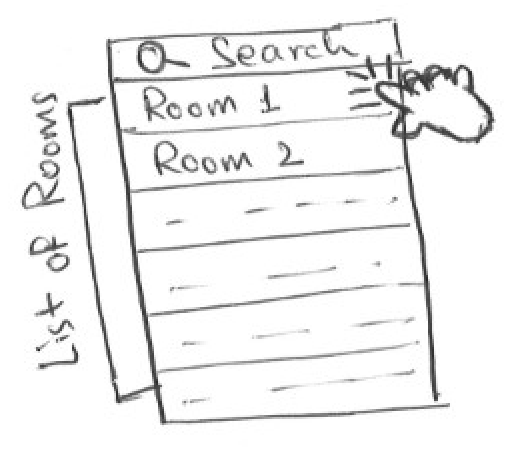 Search
Room 1
Room 2
List of Rooms